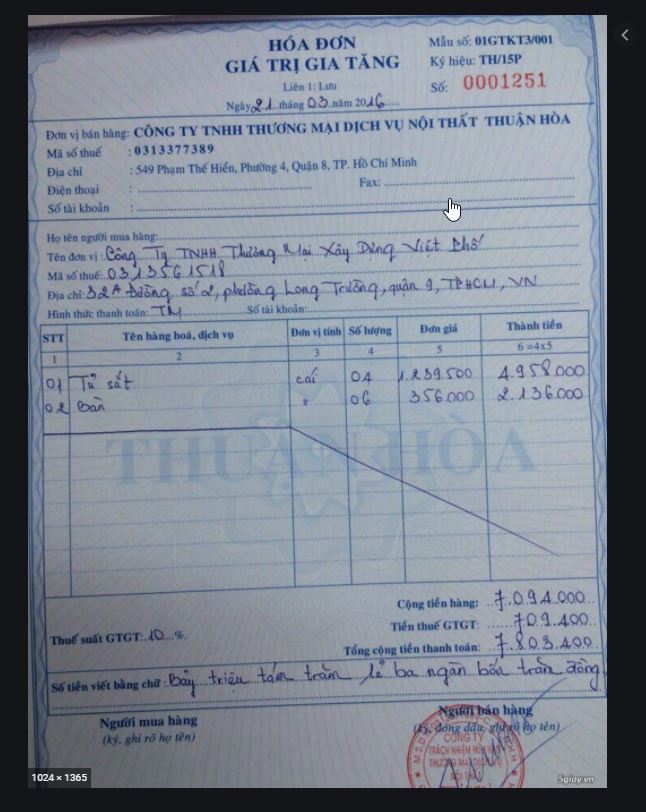 HÓA ĐƠN
GIÁ TRỊ GIA TĂNG
Liên 1: Lưu
Ngày 21 tháng 03 năm 2016
Mẫu số: 01GTKT3/001
Ký hiệu: TH/15P
Số: 0001251
Đơn vị bán hàng: CÔNG TY TNHH THƯƠNG MẠI DỊCH VỤ NỘI THẤT THUẬN HÒA
Mã số thuế : 0313377389
Địa chỉ : 549 Phạm Thế Hiển, Phường 4, Quận 8, TP. Hồ Chí Minh
Điện thoại : Fax:
Số tài khoản :
Họ tên người mua hàng:
Tên đơn vị: Công Ty TNHH Thương Mại Xây Dựng Việt Phố
Mã số thuế: 0313561518
Địa chỉ: 32A Đường số 2, phường Long Trường, quận 9, TPHCM, VN
Hình thức thanh toán: TM Số tài khoản:
STT Tên hàng hoá, dịch vụ Đơn vị tính Số lượng Đơn giá Thành tiền
1 2 3 4 5 6 =4x5
01 Tủ sắt cái 04 1.239.500 4.958.000
02 Bàn " 06 356.000 2.136.000
THUẬN HÒA
Cộng tiền hàng: 7.094.000
Thuế suất GTGT: 10 %. Tiền thuế GTGT: 709.400
Tổng cộng tiền thanh toán: 7.803.400
Số tiền viết bằng chữ: Bảy triệu tám trăm lẻ ba ngàn bốn trăm đồng
Người mua hàng
(ký, ghi rõ họ tên)
Người bán hàng
(ký, đóng dấu, ghi rõ họ tên)
CÔNG TY
TRÁCH NHIỆM HỮU HẠN
THƯƠNG MẠI DỊCH VỤ
NỘI THẤT
1024 × 1365
5giay.vn